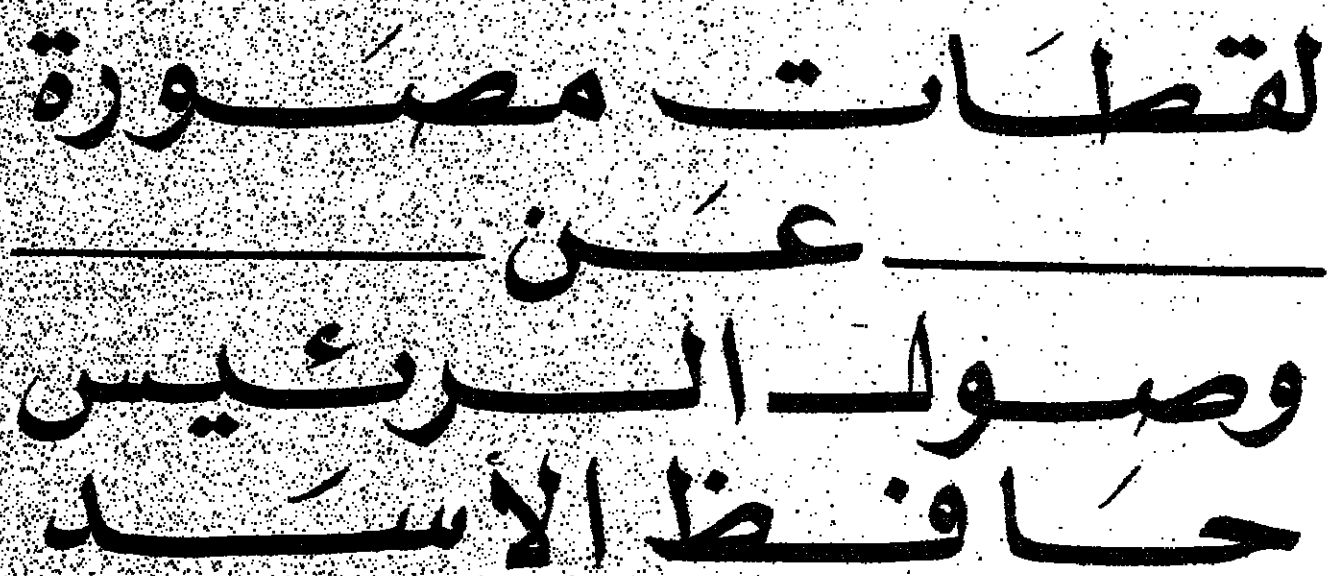 لقطات مصَورة
عَن
وصول الرئيس
حَافظ الأسَد